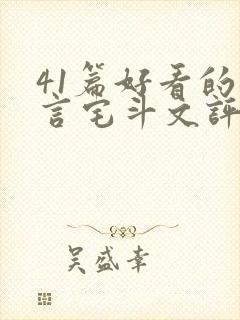 41篇好看的
言宅斗文評
吴盛幸